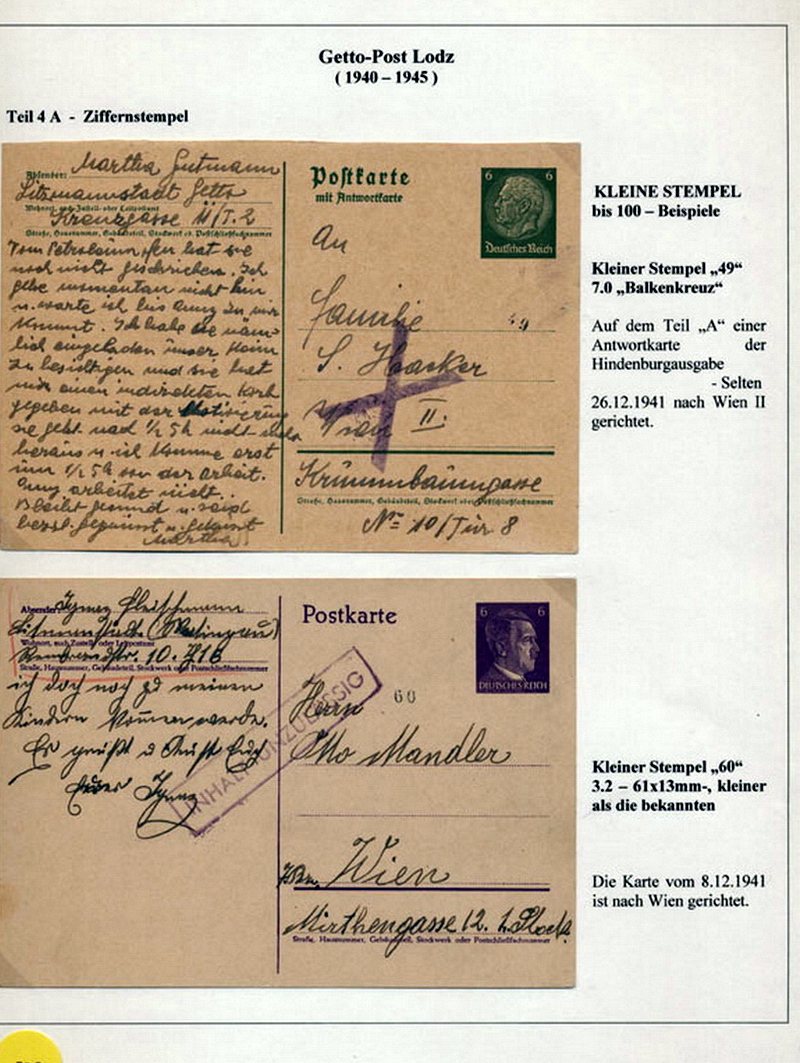 Getto-Post Lodz
( 1940 – 1945 )
Teil 4 A - Ziffernstempel
Absender: Martha Gutmann
Litzmannstadt Getto
Wohnort, auch Zustell- oder Leitpostamt
Kreuzgasse 11/T. 2
Straße, Hausnummer, Gebäudeteil, Stockwerk od. Postschließfachnummer
hat sie
noch nicht geschrieben. Ich
gehe momentan nicht hin
u. warte ich bis Anny zu mir
kommt. Ich habe sie näm-
lich eingeladen unser Heim
zu besichtigen und sie hat
mir einen indirekten Korb
gegeben mit der Motivierung
sie geht nach 1/2 5 h nicht mehr
heraus u. ich komme erst
um 1/2 5 h von der Arbeit.
Anny arbeitet nicht.
Bleibt gesund u. seid
herzl. gegrüsst u. geküsst
Martha
Postkarte
mit Antwortkarte
6 6
Deutsches Reich
An
Familie
49
S. Haacker
Wien II.
Krummbaumgasse
Straße, Hausnummer, Gebäudeteil, Stockwerk oder Postschließfachnummer
No 10/Tür 8
KLEINE STEMPEL
bis 100 – Beispiele
Kleiner Stempel „49“
7.0 „Balkenkreuz“
Auf dem Teil „A“ einer
Antwortkarte der
Hindenburgausgabe
- Selten
26.12.1941 nach Wien II
gerichtet.
Absender:
Wohnort, auch Zustell- oder Leitpostamt
Straße, Hausnummer, Gebäudeteil, Stockwerk oder Postschließfachnummer
ich doch noch zu meinen
Kindern kommen werde.
Es grüßt u küßt Euch
Euer Ignaz
Postkarte
6 6
DEUTSCHES REICH
60
INHALT UNZULÄSSIG
Herrn
Otto Mandler
Wien
Mirthengasse 12. 2. Stock
Straße, Hausnummer, Gebäudeteil, Stockwerk oder Postschließfachnummer
Kleiner Stempel „60“
3.2 – 61x13mm-, kleiner
als die bekannten
Die Karte vom 8.12.1941
ist nach Wien gerichtet.